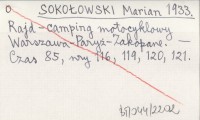 O SOKOŁOWSKI Marian 1933.
Rajd-camping motocyklowy
Warszawa-Paryż-Zakopane. —
Czas 85, nry 116, 119, 120, 121.